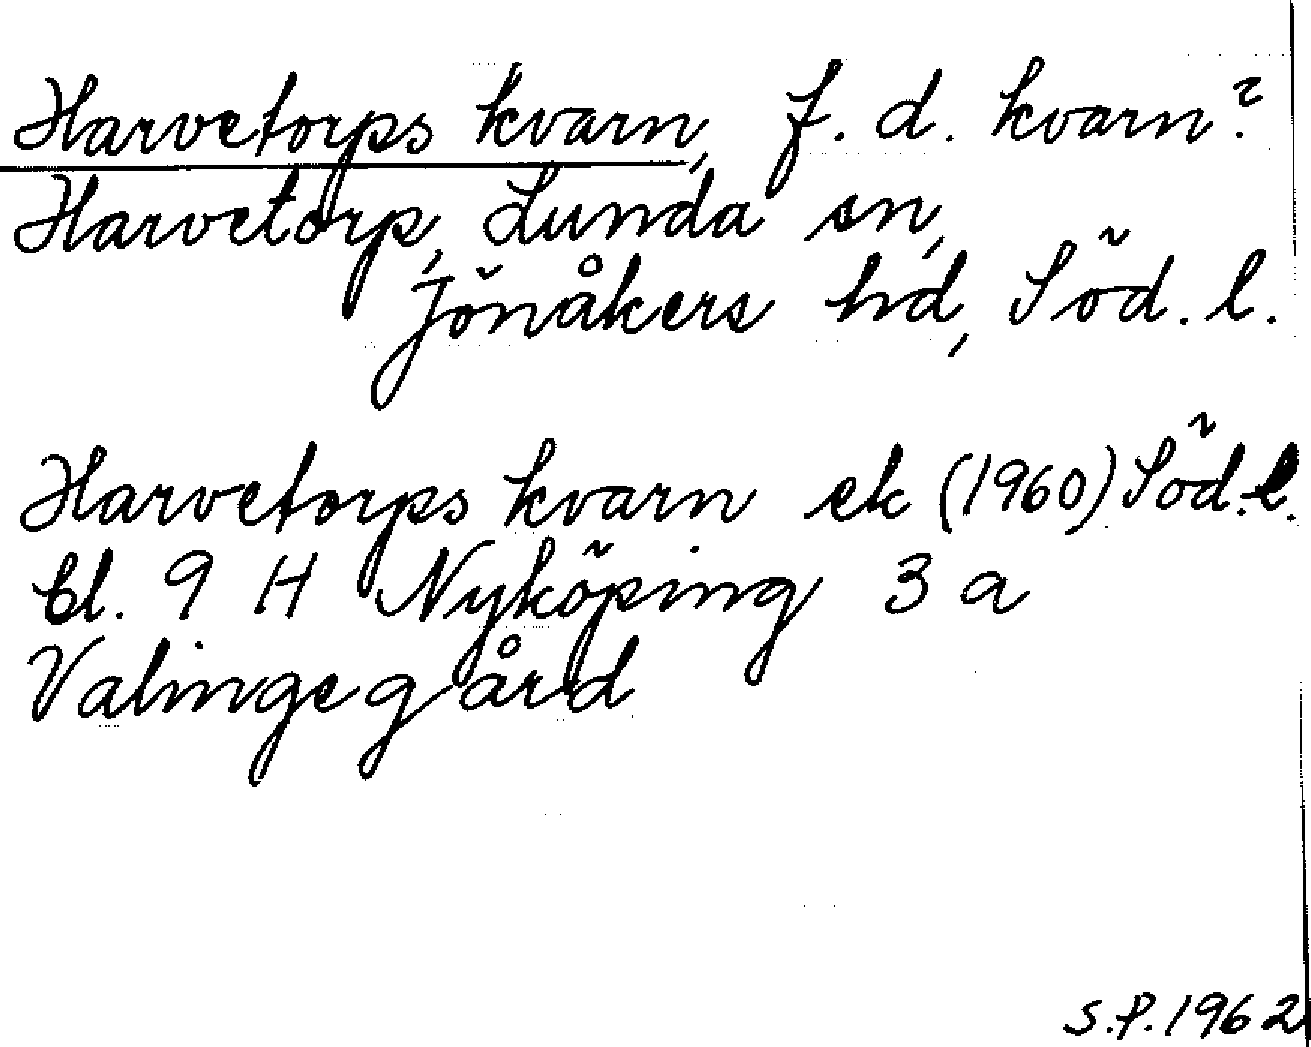 Harvetorps kvarn, f. d. kvarn?
Harvetorp, Lunda sn,
Jönåkers hd, Söd. l.
Harvetorps kvarn ek (1960) Söd. l.
bl. 9 H Nyköping 3 a
Valingegård
S.P. 1962